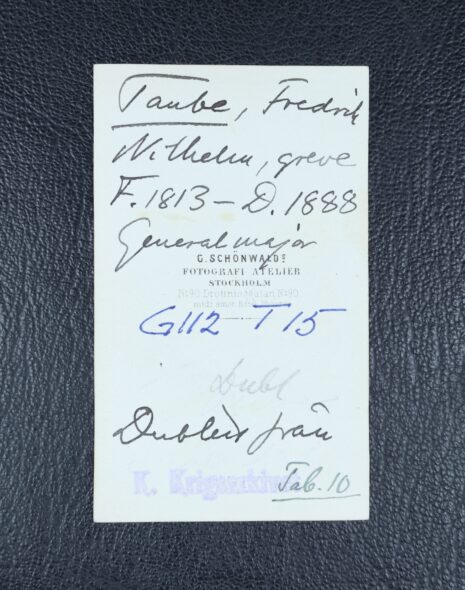 Taube, Fredrik
Wilhelm, greve
F. 1813 – D. 1888
Generalmajor
G. SCHÖNWALDS
FOTOGRAFI ATELIER
STOCKHOLM
No 90 Drottninggatan No 90
G112 T 15
Dubl
Dublett från
K. Krigsarkivet
Tab. 10